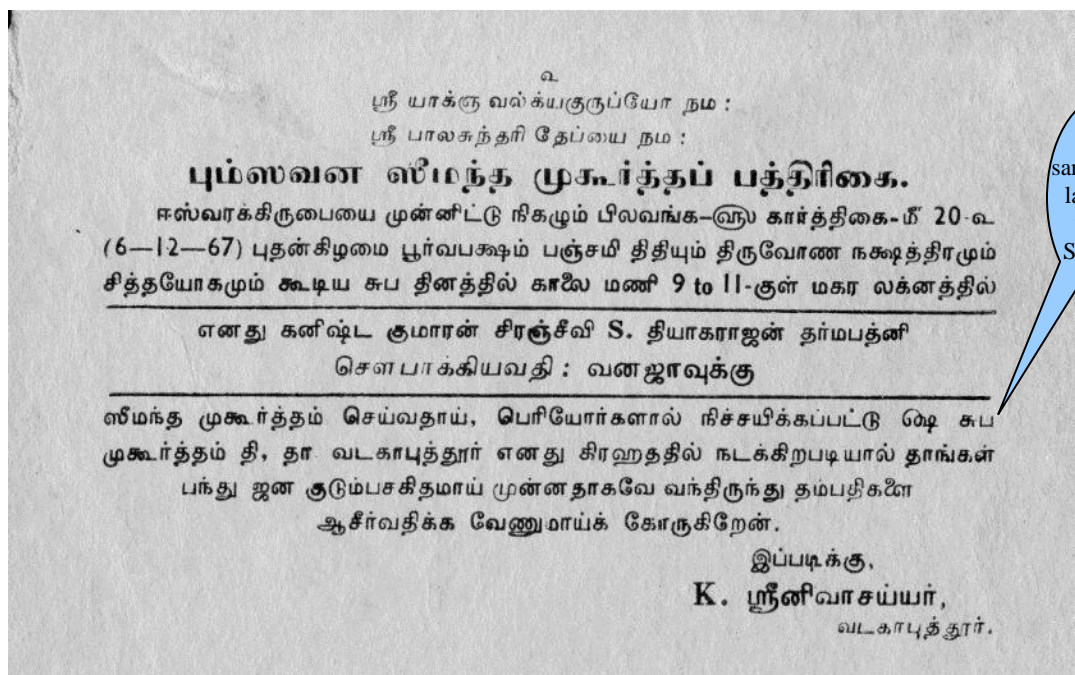 உ
ஸ்ரீ யாக்ஞவல்க்யகுருப்யோ நம :
ஸ்ரீ பாலசுந்தரி தேப்யை நம :
பும்ஸவன ஸீமந்த முகூர்த்தப் பத்திரிகை.
ஈஸ்வரக்கிருபையை முன்னிட்டு நிகழும் பிலவங்க–௵ கார்த்திகை–மீ 20-உ
(6—12—67) புதன்கிழமை பூர்வபக்ஷம் பஞ்சமி திதியும் திருவோண நக்ஷத்திரமும்
சித்தயோகமும் கூடிய சுப தினத்தில் காலை மணி 9 to 11-குள் மகர லக்னத்தில்
எனது கனிஷ்ட குமாரன் சிரஞ்சீவி S. தியாகராஜன் தர்மபத்னி
சௌபாக்கியவதி : வனஜாவுக்கு
ஸீமந்த முகூர்த்தம் செய்வதாய், பெரியோர்களால் நிச்சயிக்கப்பட்டு ௸ சுப
முகூர்த்தம் தி, தா. வடகாபுத்தூர் எனது கிரஹததில் நடக்கிறபடியால் தாங்கள்
பந்து ஜன குடும்பசகிதமாய் முன்னதாகவே வந்திருந்து தம்பதிகளை
ஆசீர்வதிக்க வேணுமாய்க் கோருகிறேன்.
இப்படிக்கு,
K. ஸ்ரீனிவாசய்யர்,
வடகாபுத்தூர்.